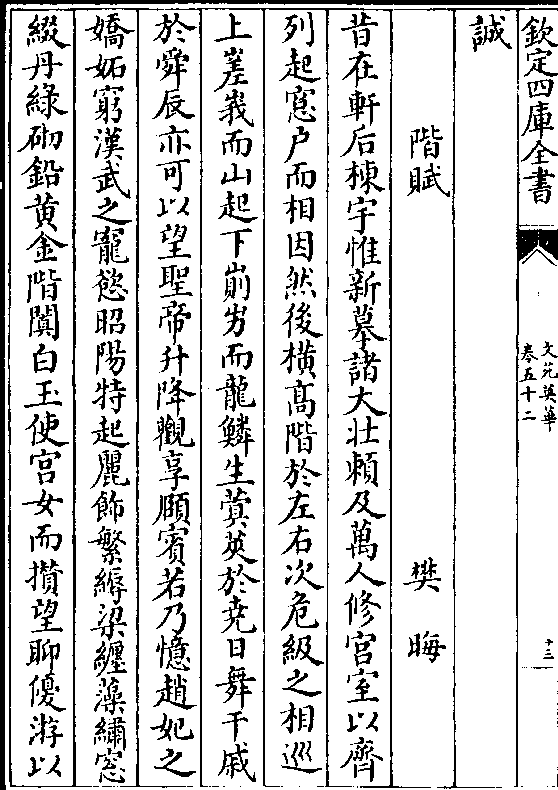 欽定四庫全書
文苑英華
卷五十二
十三
誠
階賦 樊晦
昔在軒后棟宇惟新摹諸大壯賴及萬人修宫室以齊
列起窻户而相因然後横高階於左右次危級之相巡
上嵳峩而山起下崱屴而龍鱗生蓂莢於堯日舞干戚
於舜辰亦可以望聖帝升降觀享頫賓若乃憶趙妃之
嬌妬窮漢武之寵慾昭陽特起麗飾繁縟梁纏藻繡窓
綴丹綠砌鉛黄金階闐白玉使宫女而攢望聊優游以